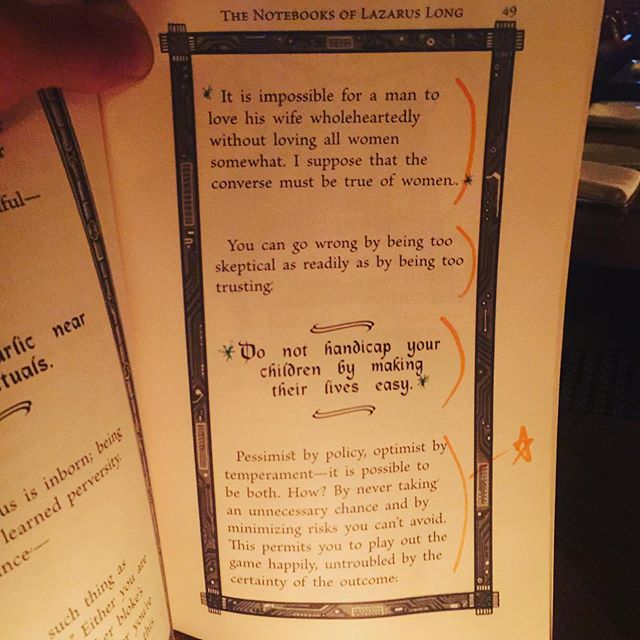 THE NOTEBOOKS OF LAZARUS LONG 49
It is impossible for a man to
love his wife wholeheartedly
without loving all women
somewhat. I suppose that the
converse must be true of women.
You can go wrong by being too
skeptical as readily as by being too
trusting.
Do not handicap your
children by making
their lives easy.
Pessimist by policy, optimist by
temperament—it is possible to
be both. How? By never taking
an unnecessary chance and by
minimizing risks you can't avoid.
This permits you to play out the
game happily, untroubled by the
certainty of the outcome.
near
us is inborn; being
learned perversity.
such thing as
Either you are